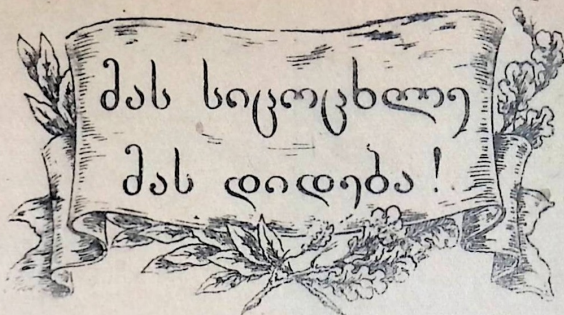 მას სიცოცხლე
მას დიდება!